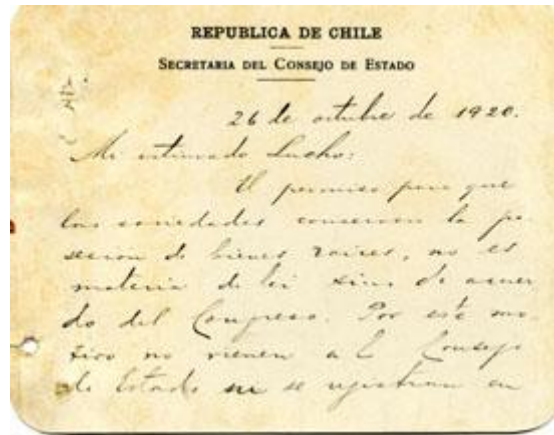 REPUBLICA DE CHILE
SECRETARIA DEL CONSEJO DE ESTADO
26 de octubre de 1920.
Mi estimado Lucho:
El permiso para que
las sociedades conserven la po
sesion de bienes raices, no es
materia de lei sino de acuer
do del Congreso. Por este mo-
tivo no vienen al Consejo
de Estado ni se registran en